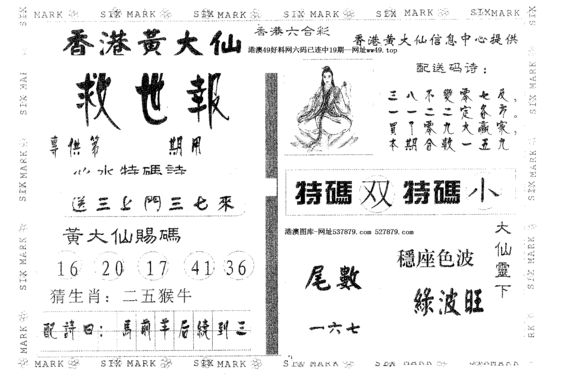 SIX MARK SIX MARK SIX MARK SIX MARK SIX MARK
香港六合彩
香港黃大仙
港澳49好料网六码已连中19期--网址ww49.top
香港黄大仙信息中心提供
救世報
專供第 期用
心水特碼詩
送三上門三七來
黃大仙賜碼
16 20 17 41 36
猜生肖：二五猴牛
配詩曰：馬前羊后續到三
配送码诗：
三八不變零七反，
一一二二定來市。
買十零九大贏家，
本期合數一五九。
特碼 双 特碼 小
港澳图库-网址537879.com 527879.com
尾數
一六七
穩座色波
綠波旺
大仙靈下
MARK SIX MARK SIX MARK SIX MARK SIX MARK